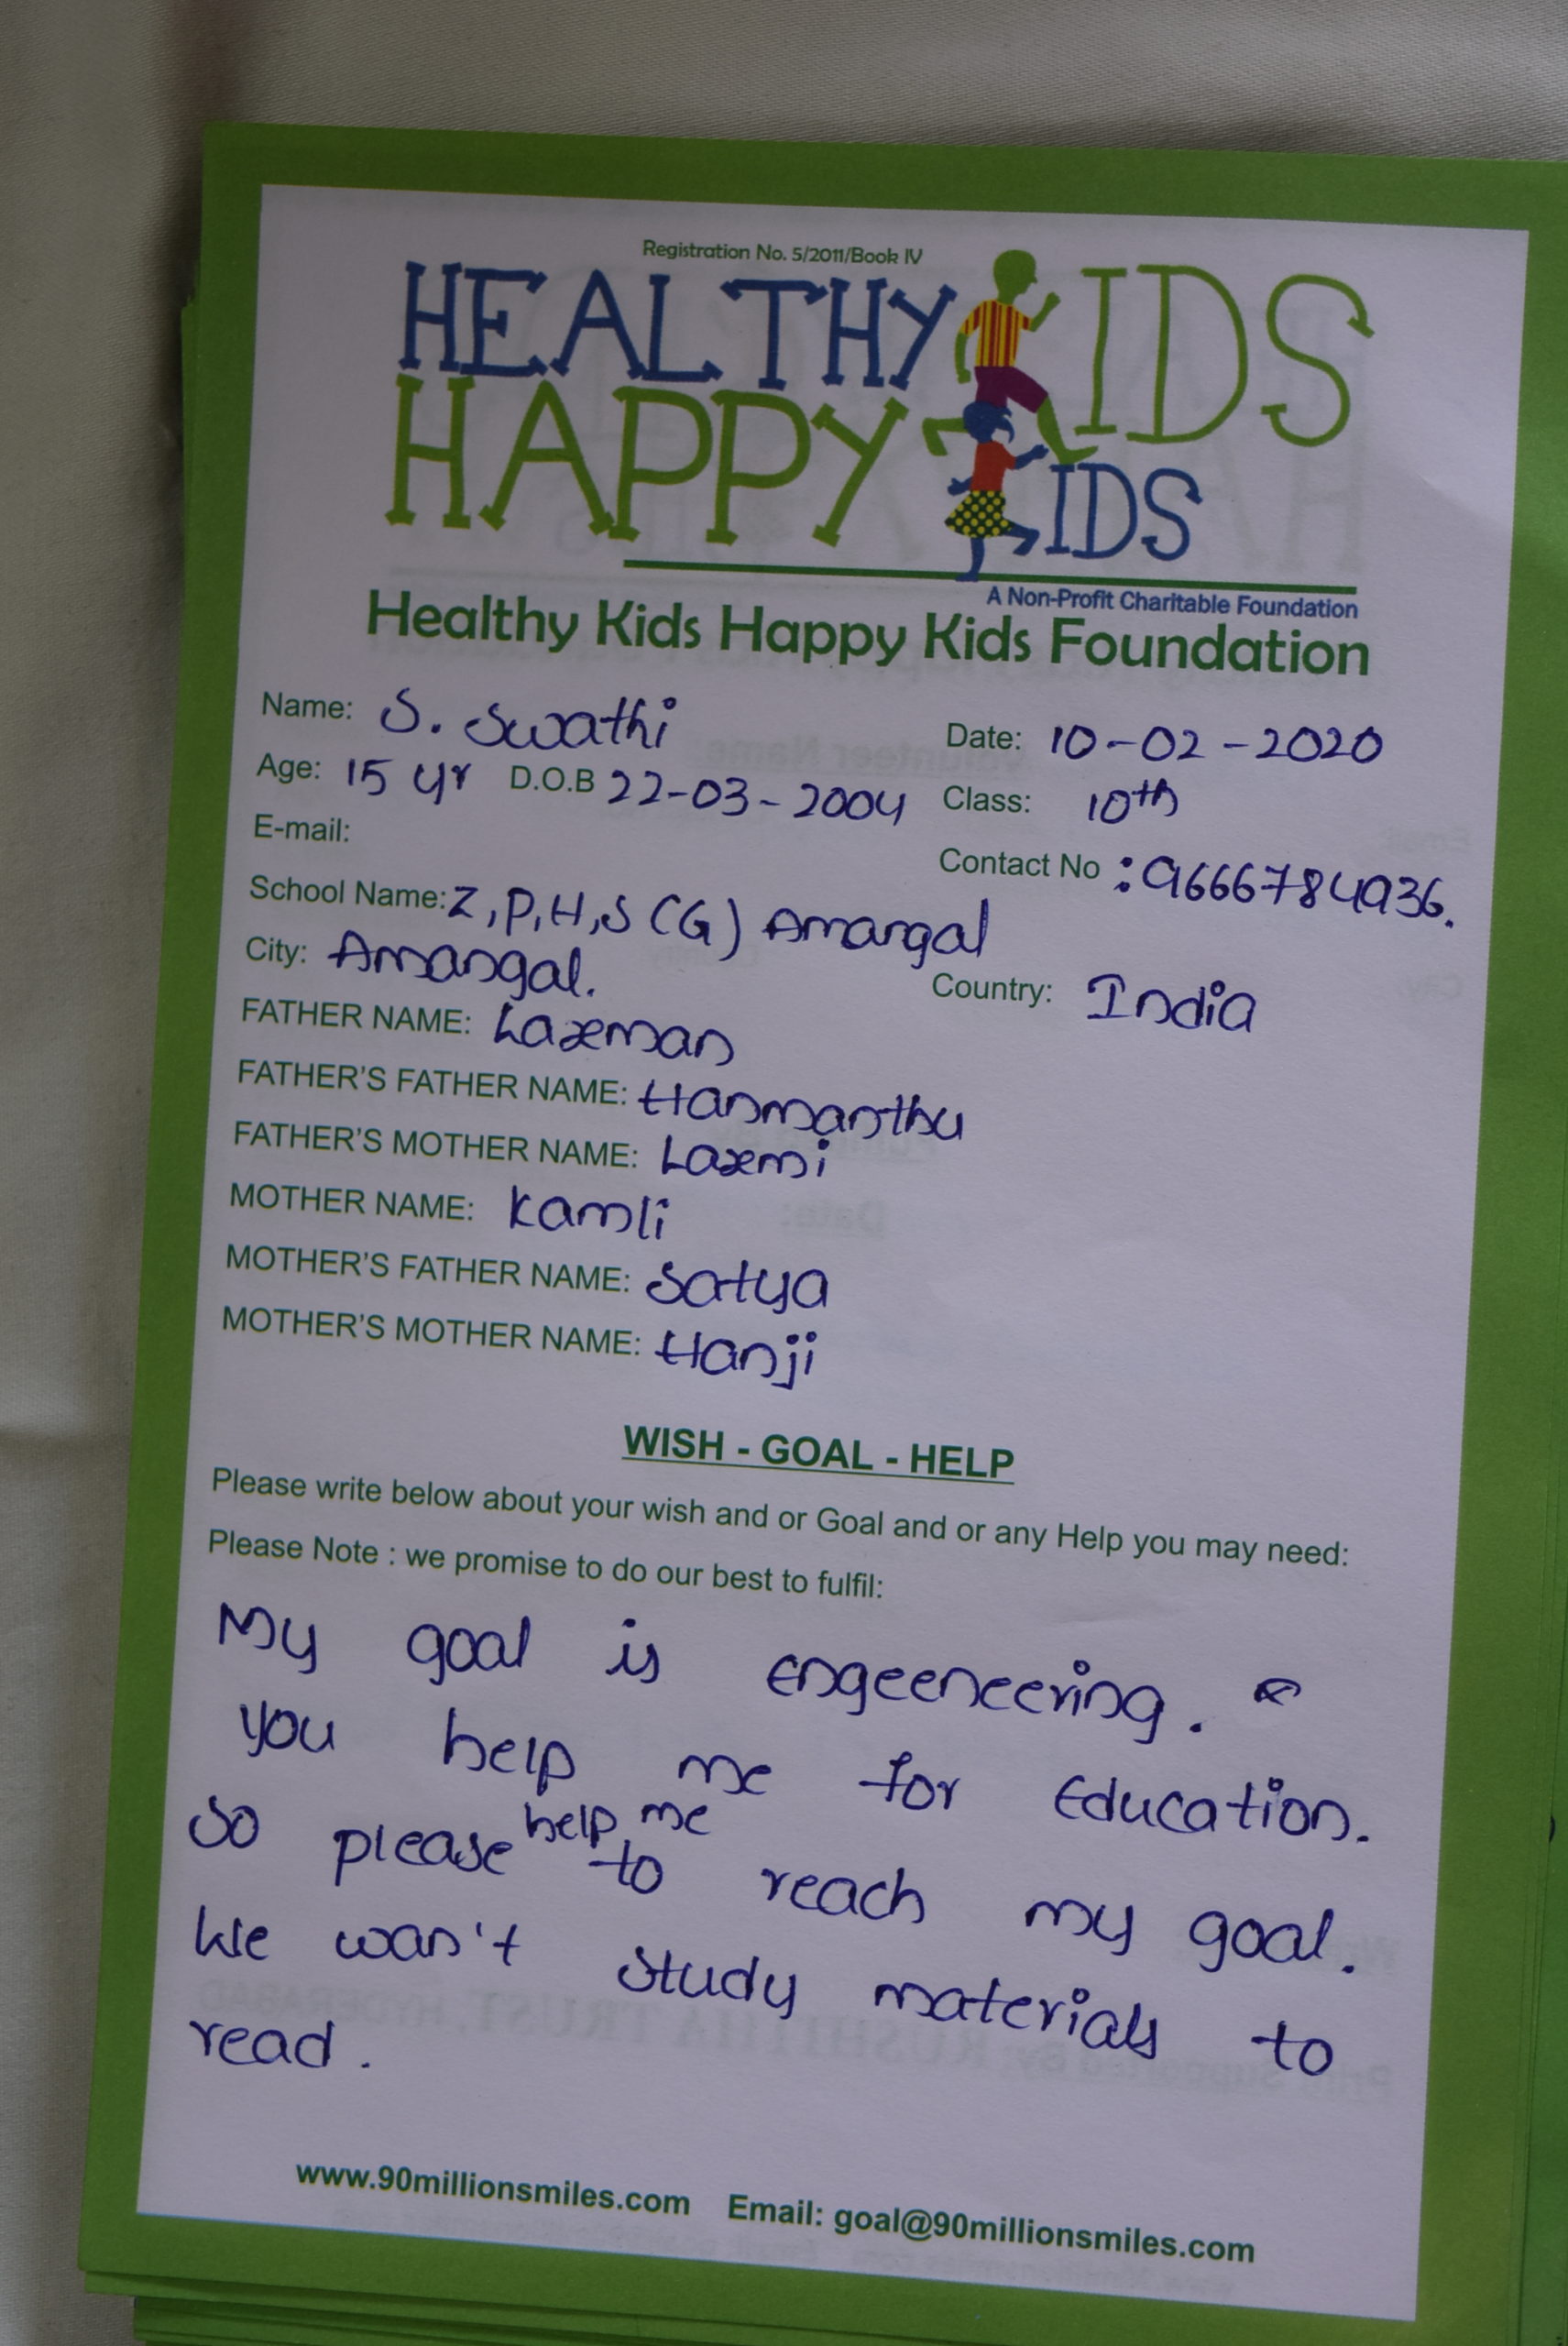 Registration No. 5/2011/Book IV
HEALTHY KIDS
HAPPY KIDS
A Non-Profit Charitable Foundation
Healthy Kids Happy Kids Foundation
Name: S. Swathi Date: 10-02-2020
Age: 15 yr D.O.B 22-03-2004 Class: 10th
E-mail: Contact No : 9666784936.
School Name: Z,P,H,S (G) Amangal
City: Amangal. Country: India
FATHER NAME: Laxman
FATHER'S FATHER NAME: Hanmanthu
FATHER'S MOTHER NAME: Laxmi
MOTHER NAME: Kamli
MOTHER'S FATHER NAME: Satya
MOTHER'S MOTHER NAME: Hanji
WISH - GOAL - HELP
Please write below about your wish and or Goal and or any Help you may need:
Please Note : we promise to do our best to fulfil:
My goal is engeeneering.
you help me for Education.
So please help me to reach my goal.
We wan't study materials to
read.
www.90millionsmiles.com Email: goal@90millionsmiles.com